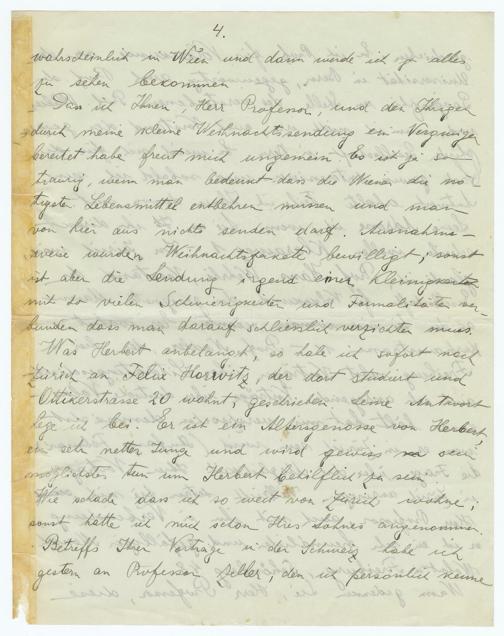 4.
wahrscheinlich in Wien und dann werde ich ja alles
zu sehen bekommen
Dass ich Ihnen Herr Professor, und den Ihrigen
durch meine kleine Weihnachtssendung ein Vergnügen
bereitet habe freut mich ungemein. Es ist ja so
traurig, wenn man bedenkt dass die Wiener die nö
tigsten Lebensmittel entbehren müssen und man
von hier aus nichts senden darf. Ausnahms-
weise wurden Weihnachtspakete bewilligt, sonst
ist aber die Sendung irgend einer Kleinigkeit
mit so vielen Schwierigkeiten und Formalitäten ver-
bunden dass man darauf schliesslich verzichten muss.
Was Herbert anbelangt, so habe ich sofort nach
Zürich an Felix Horwitz, der dort studiert und
Ottikerstrasse 20 wohnt, geschrieben. Seine Antwort
lege ich bei. Er ist ein Altersgenosse von Herbert,
ein sehr netter Junge und wird gewiss sein
möglichstes tun um Herbert behilflich zu sein
Wie schade dass ich so weit von Zürich wohne,
sonst hätte ich mich schon Ihres Sohnes angenommen.
Betreffs Ihrer Vorträge in der Schweiz habe ich
gestern an Professor, den ich persönlich kenne